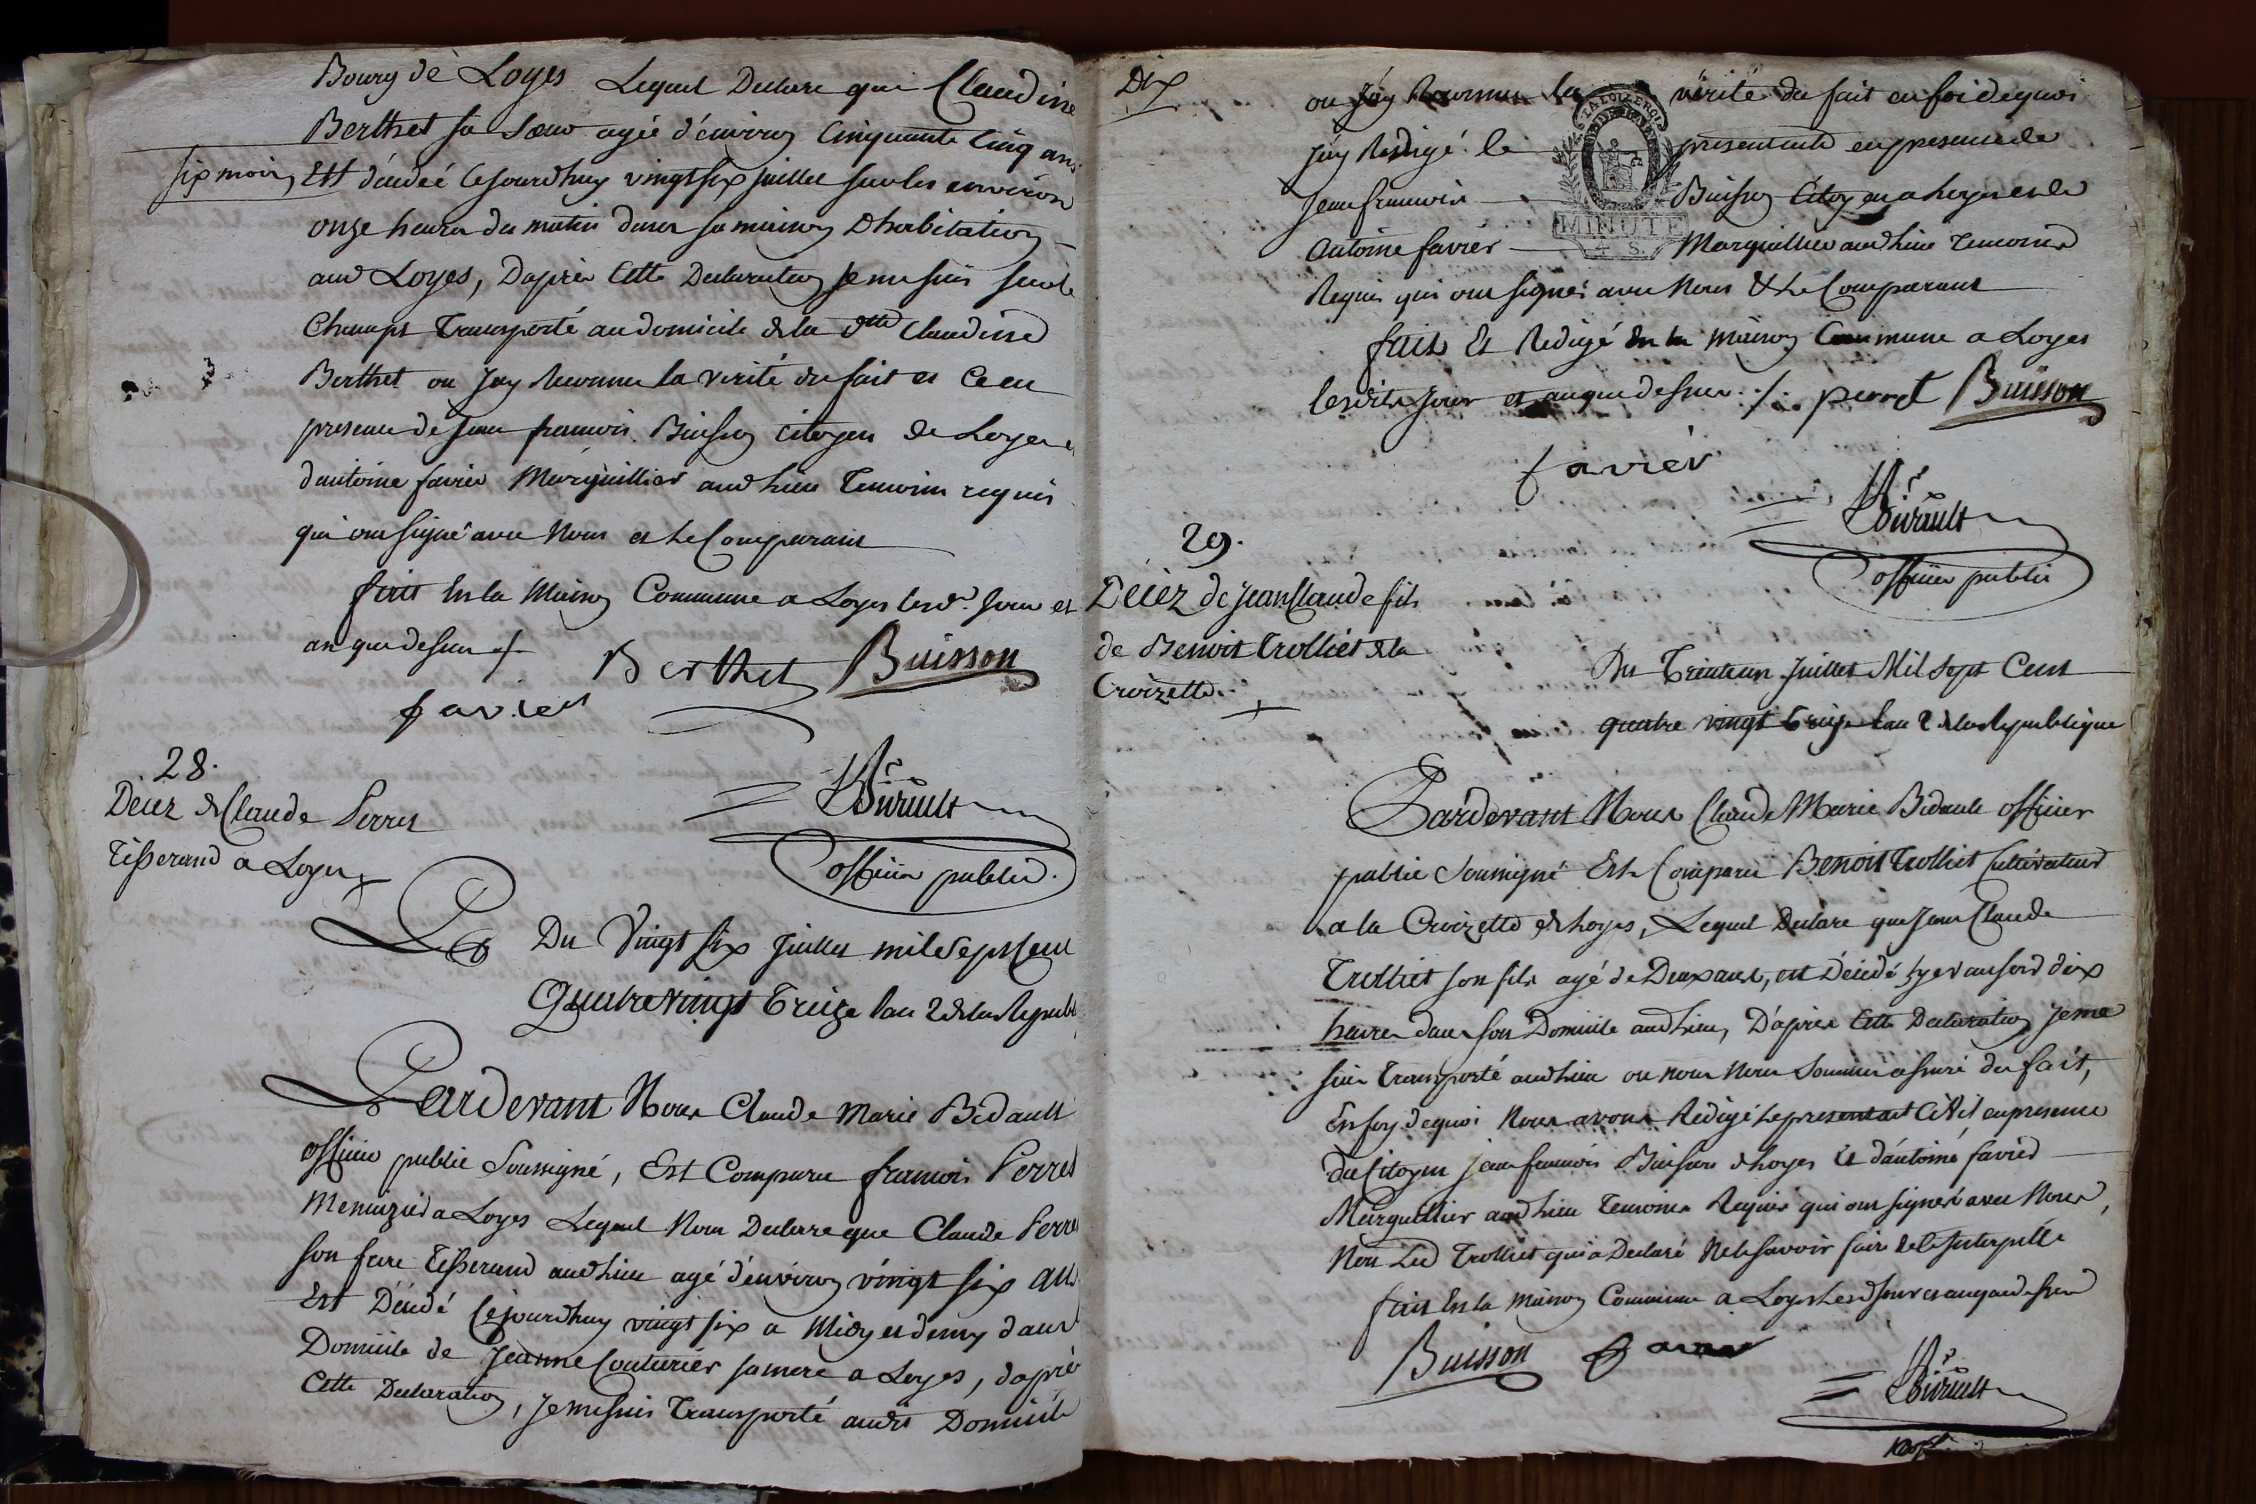 Bourg de Loyes Lequel Declare que Claudine
Berthet sa Sœur agée d'environ Cinquante Cinq ans
six mois, Est décédée Cejourdhuy vingt six juillet sur les environ
onze heures du matin dans sa maison Dhabitation
aud Loyes, D'après Cette Declaration je me suis sur le
Champs Transporté au domicile de la dtte Claudine
Berthet ou J'ay Reconnu la verité du fait et Ce en
presence de jean francois Buisson Citoyen de Loyes e
d'antoine favier Marguillier aud Lieu Temoins requis
qui ont signé avec Nous et Le Comparant
fait En la Maison Commune a Loyes lesd. jour et
an que dessus ./.
Berthet Buisson
favier
Bidault
officier public
28.
Décez de Claude Perret
Tisserand a Loyes
Du Vingt six juillet mil Sept Cent
Quatre vingt Treize l'an 2 de la Republ
Pardevant Nous Claude Marie Bidault
officier public Soussigné, Est Comparu francois Perret
Menuizier a Loyes Lequel Nous Declare que Claude Perre
son frere Tisserand aud Lieu agé d'environ vingt six ans
Est Décédé Cejourdhuy vingt six a Midy et demy dans
Domicile de Jeanne Couturier sa mere a Loyes, d'après
Cette Declaration, je me suis Transporté audit Domicile
Dix
ou j'ay Reconnu la vérité du fait en foi de quoi
j'ay Redigé le present acte en presence de
Jean francois Buisson Citoyen a Loyes et de
Antoine favier Marguillier aud Lieu Temoins
MINUTE
4 S.
Requis qui ont signés avec Nous & Le Comparant
fait Et Redigé En la Maison Commune a Loyes
lesdits jour et an que dessus ./. perret Buisson
favier
Bidault
officier public
29.
Décez de jean Claude fils
de Benoit Trolliet de la
Croizette
Du Trente un Juillet Mil Sept Cent
quatre vingt Treize l'an 2 de la Republique
Pardevant Nous Claude Marie Bidault officier
public Soussigné Est Comparu Benoit Trolliet Cultivateur
a la Croizette de Loyes, Lequel Declare que Jean Claude
Trolliet son fils agé de Deux ans, est Décédé hyer au soir dix
heures dans son Domicile aud Lieu, D'après Cette Declaration je me
suis Transporté aud Lieu ou nous Nous Sommes assuré du fait,
En foy de quoi Nous avons Redigé Le present act Civil en presence
du Citoyen jean francois Buisson de Loyes et d'antoine favier
Marguillier aud Lieu Temoins Requis qui ont signés avec Nous,
Non Led Trolliet qui a Declaré Ne le savoir faire de ce Interpellé
fait En la Maison Commune a Loyes Lesd jour et an que dessus
Buisson favier
Bidault